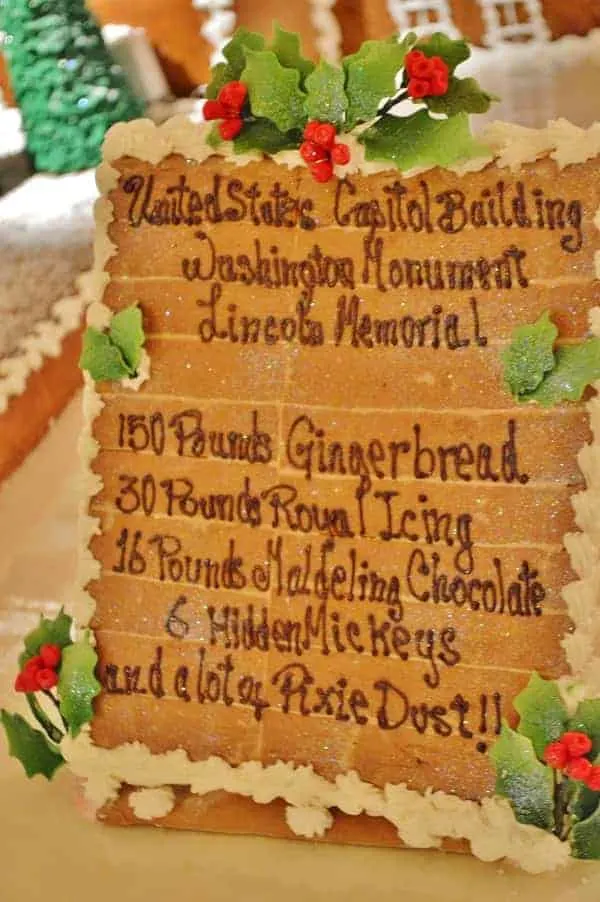 United States Capitol Building
Washington Monument
Lincoln Memorial
150 Pounds Gingerbread
30 Pounds Royal Icing
16 Pounds Maldeling Chocolate
6 Hidden Mickeys
and a lot of Pixie Dust!!